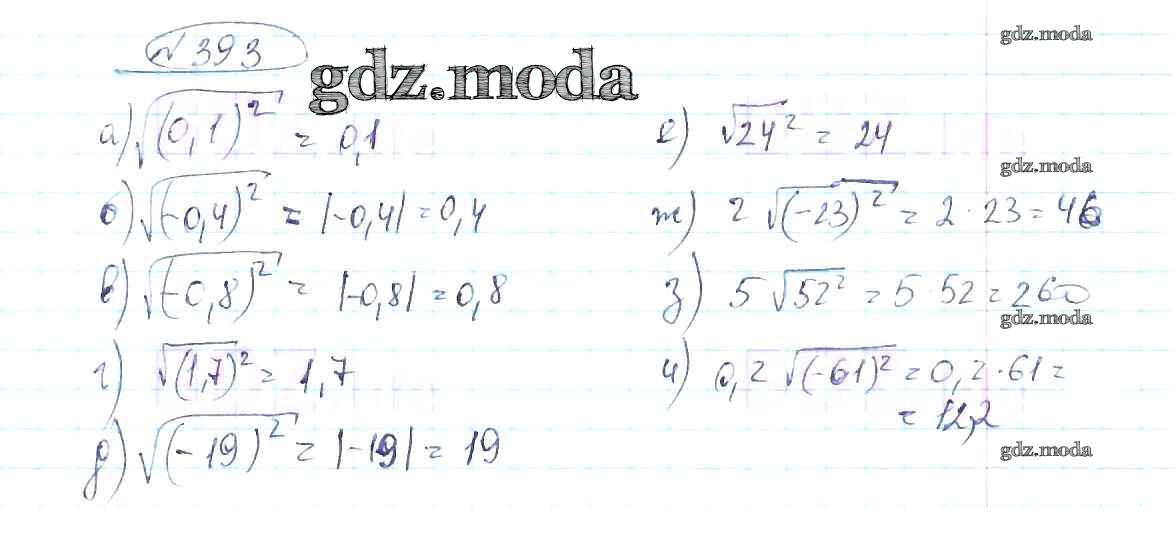 № 393
gdz.moda
gdz.moda
а) √(0,1)² = 0,1
б) √(-0,4)² = |-0,4| = 0,4
в) √(-0,8)² = |-0,8| = 0,8
г) √(1,7)² = 1,7
д) √(-19)² = |-19| = 19
е) √24² = 24
gdz.moda
ж) 2 √(-23)² = 2 · 23 = 46
з) 5 √52² = 5 · 52 = 260
gdz.moda
и) 0,2 √(-61)² = 0,2 · 61 =
= 12,2
gdz.moda